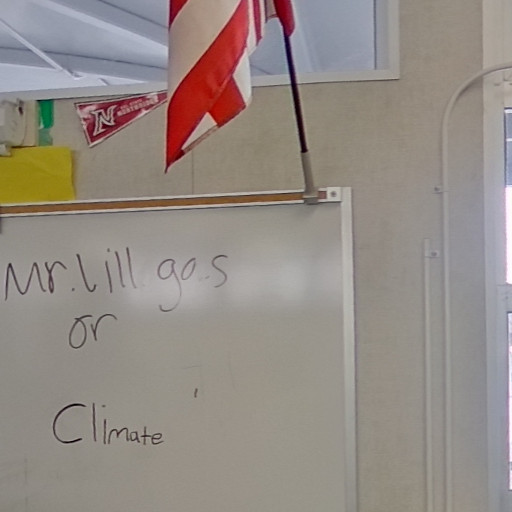 N
Mr. Lill gas
or
Climate